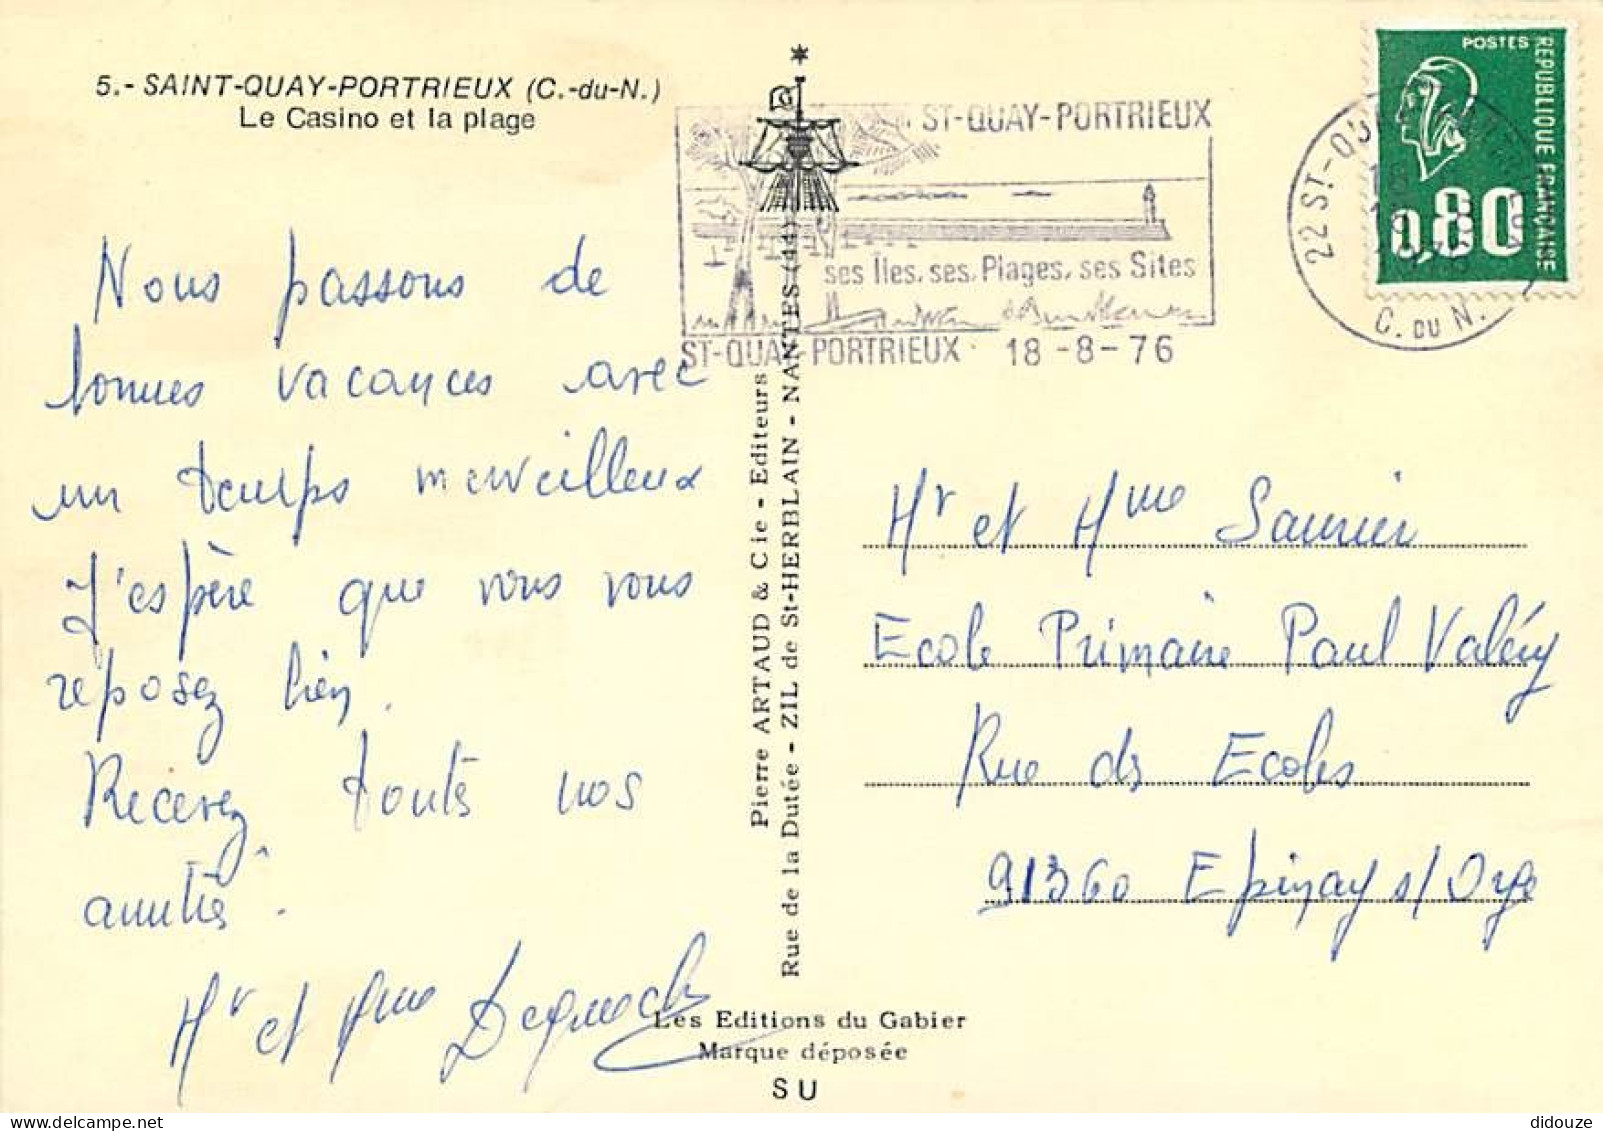 5.- SAINT-QUAY-PORTRIEUX (C.-du-N.)
Le Casino et la plage
Nous passons de
bonnes vacances avec
un temps merveilleux
J'espère que vous vous
reposez bien.
Recevez toutes nos
amitiés.
Mr et Mme
Pierre ARTAUD & Cie - Editeurs
Rue de la Dutée - ZIL de St-HERBLAIN - NANTES (44)
Les Editions du Gabier
Marque déposée
SU
ST-QUAY-PORTRIEUX
ses Îles, ses, Plages, ses Sites
ST-QUAY-PORTRIEUX 18-8-76
22 ST-QU
C. DU N.
POSTES
REPUBLIQUE FRANÇAISE
0,80
Mr et Mme Saunier
Ecole Primaire Paul Valéry
Rue des Ecoles
91360 Epinay s/Orge
didouze